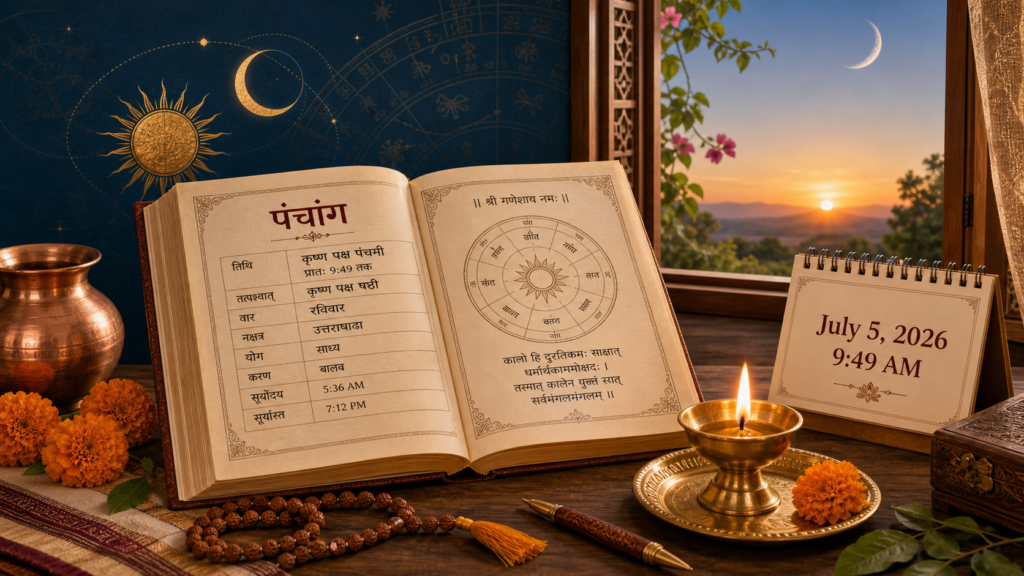 पंचांग
तिथि कृष्ण पक्ष पंचमी
प्रातः 9:49 तक
तत्पश्चात् कृष्ण पक्ष षष्ठी
वार रविवार
नक्षत्र उत्तराषाढा
योग साध्य
करण बालव
सूर्योदय 5:36 AM
सूर्यास्त 7:12 PM
|| श्री गणेशाय नमः ||
कालो हि दुरतिकमः साक्षात्
धर्मार्थकाममोक्षदः ।
तस्मात् कालेन युक्तं स्यात्
सर्वमंगलमंगलम् ॥
July 5, 2026
9:49 AM